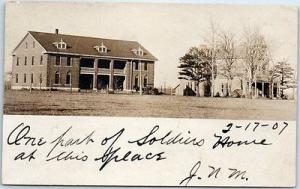 2-17-07
One part of Soldiers Home
at this place
J.N.M.